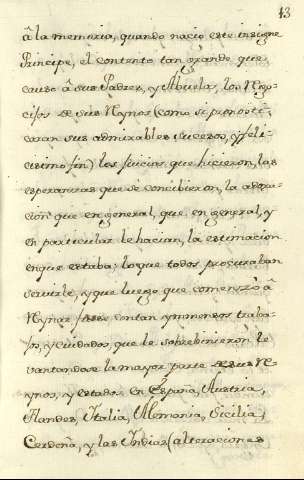 13
â la memoria, quando nacio este insigne
Principe, el contento tan grande que
causo â sus Padres, y Abuelos, los Rego-
cijos de sus Reynos (como si pronosti-
caran sus admirables sucesos, y feli-
cisimo fin) los juicios que hicieron, las
esperanzas que se concibieron, la adora-
cion que en general, que en general, y
en particular le hacian, la estimacion
en que estaba: lo que todos procuraban
servirle, y que luego que comenzò â
Reynar fue con tan ynmensos traba-
jos, y cuidados, que le sobrebinieron le
vantandose la mayor parte de sus Re-
ynos, y estados en España, Austria,
Flandes, Italia, Alemania, Sicilia,
Cerdeña, y las Indias (alteraciones